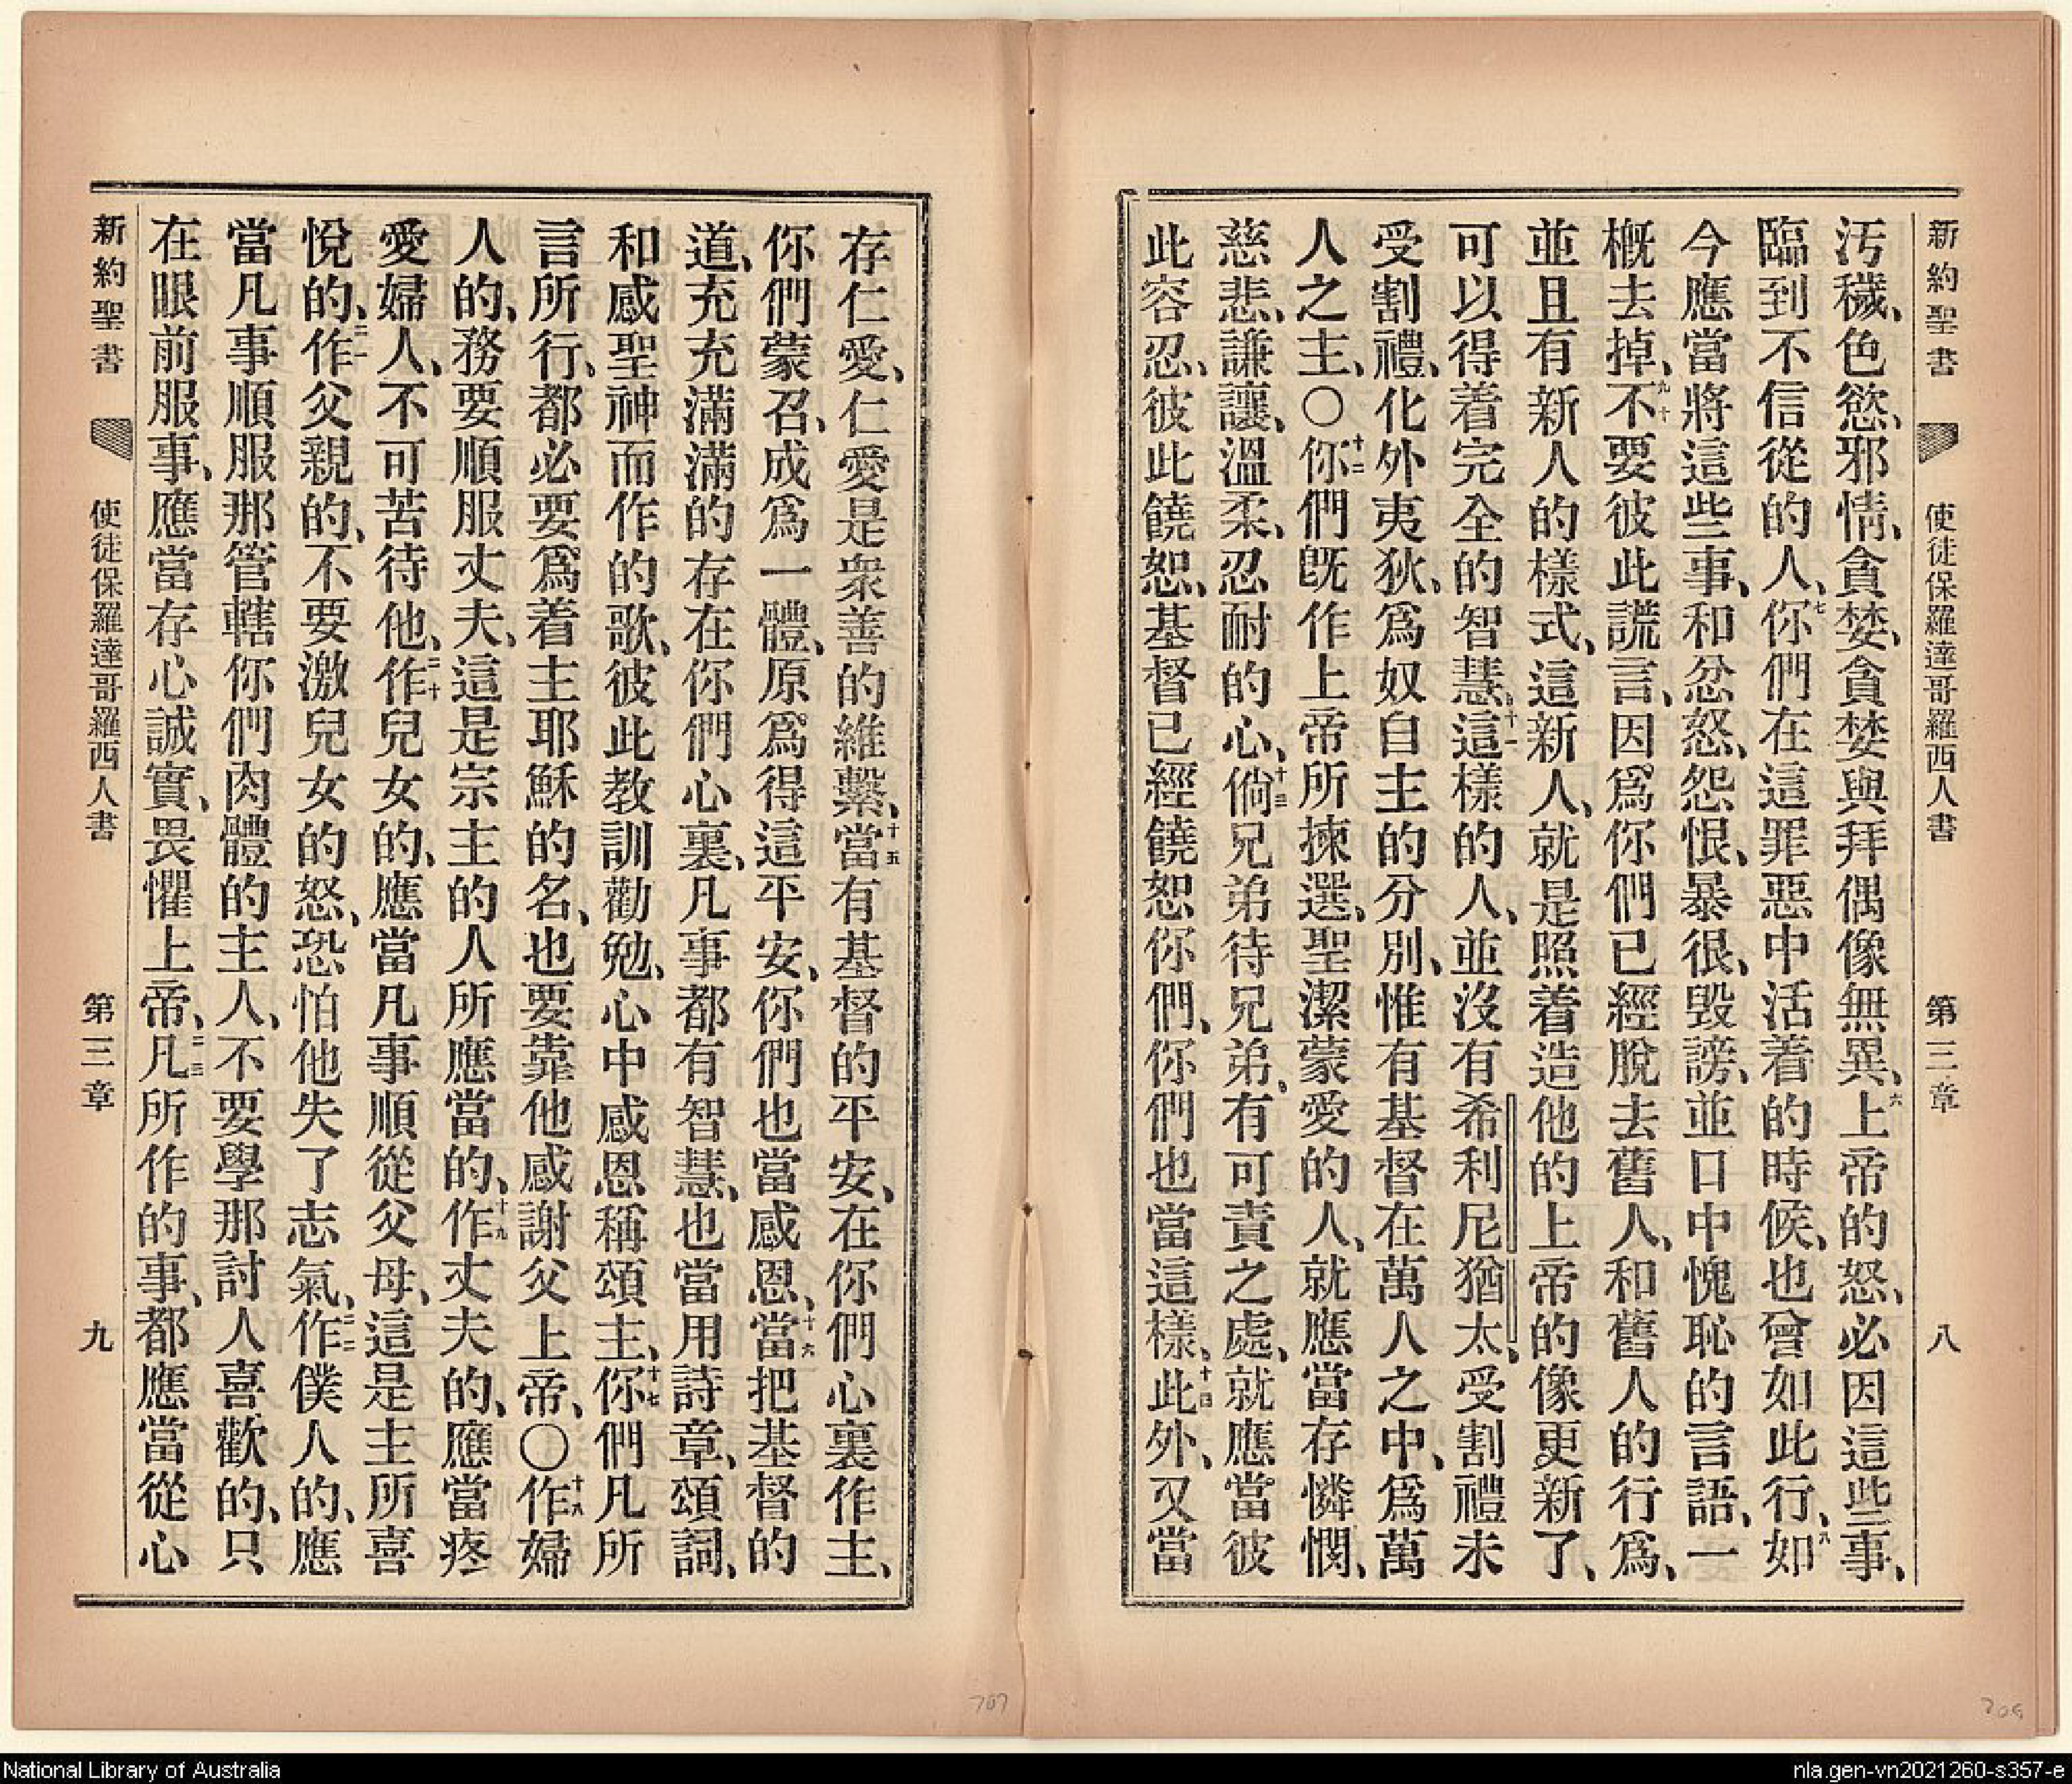 新約聖書 使徒保羅達哥羅西人書 第三章 八
汚穢、色慾、邪情、貪婪、貪婪與拜偶像無異、六上帝的怒、必因這些事、
臨到不信從的人、七你們在這罪惡中活着的時候、也曾如此行、八如
今應當將這些事、和忿怒、怨恨、暴很、毀謗、並口中愧恥的言語、一
概去掉、九十不要彼此謊言、因爲你們已經脫去舊人、和舊人的行爲、
並且有新人的樣式、這新人、就是照着造他的上帝的像更新了、
可以得着完全的智慧、十一這樣的人、並沒有希利尼猶太、受割禮未
受割禮、化外夷狄、爲奴自主的分別、惟有基督在萬人之中、爲萬
人之主、〇十二你們旣作上帝所揀選、聖潔蒙愛的人、就應當存憐憫、
慈悲、謙讓、溫柔、忍耐的心、十三倘兄弟待兄弟、有可責之處、就應當彼
此容忍、彼此饒恕、基督已經饒恕你們、你們也當這樣、十四此外、又當
存仁愛、仁愛是衆善的維繫、十五當有基督的平安、在你們心裏作主、
你們蒙召、成爲一體、原爲得這平安、你們也當感恩、十六當把基督的
道、充充滿滿的存在你們心裏、凡事都有智慧、也當用詩章、頌詞、
和感聖神而作的歌、彼此教訓勸勉、心中感恩稱頌主、十七你們凡所
言所行、都必要爲着主耶穌的名、也要靠他感謝父上帝、〇十八作婦
人的、務要順服丈夫、這是宗主的人所應當的、十九作丈夫的、應當疼
愛婦人、不可苦待他、二十作兒女的、應當凡事順從父母、這是主所喜
悅的、二一作父親的、不要激兒女的怒、恐怕他失了志氣、二二作僕人的、應
當凡事順服那管轄你們肉體的主人、不要學那討人喜歡的、只
在眼前服事、應當存心誠實、畏懼上帝、二三凡所作的事、都應當從心
新約聖書 使徒保羅達哥羅西人書 第三章 九
707
National Library of Australia
nla.gen-vn2021260-s357-e